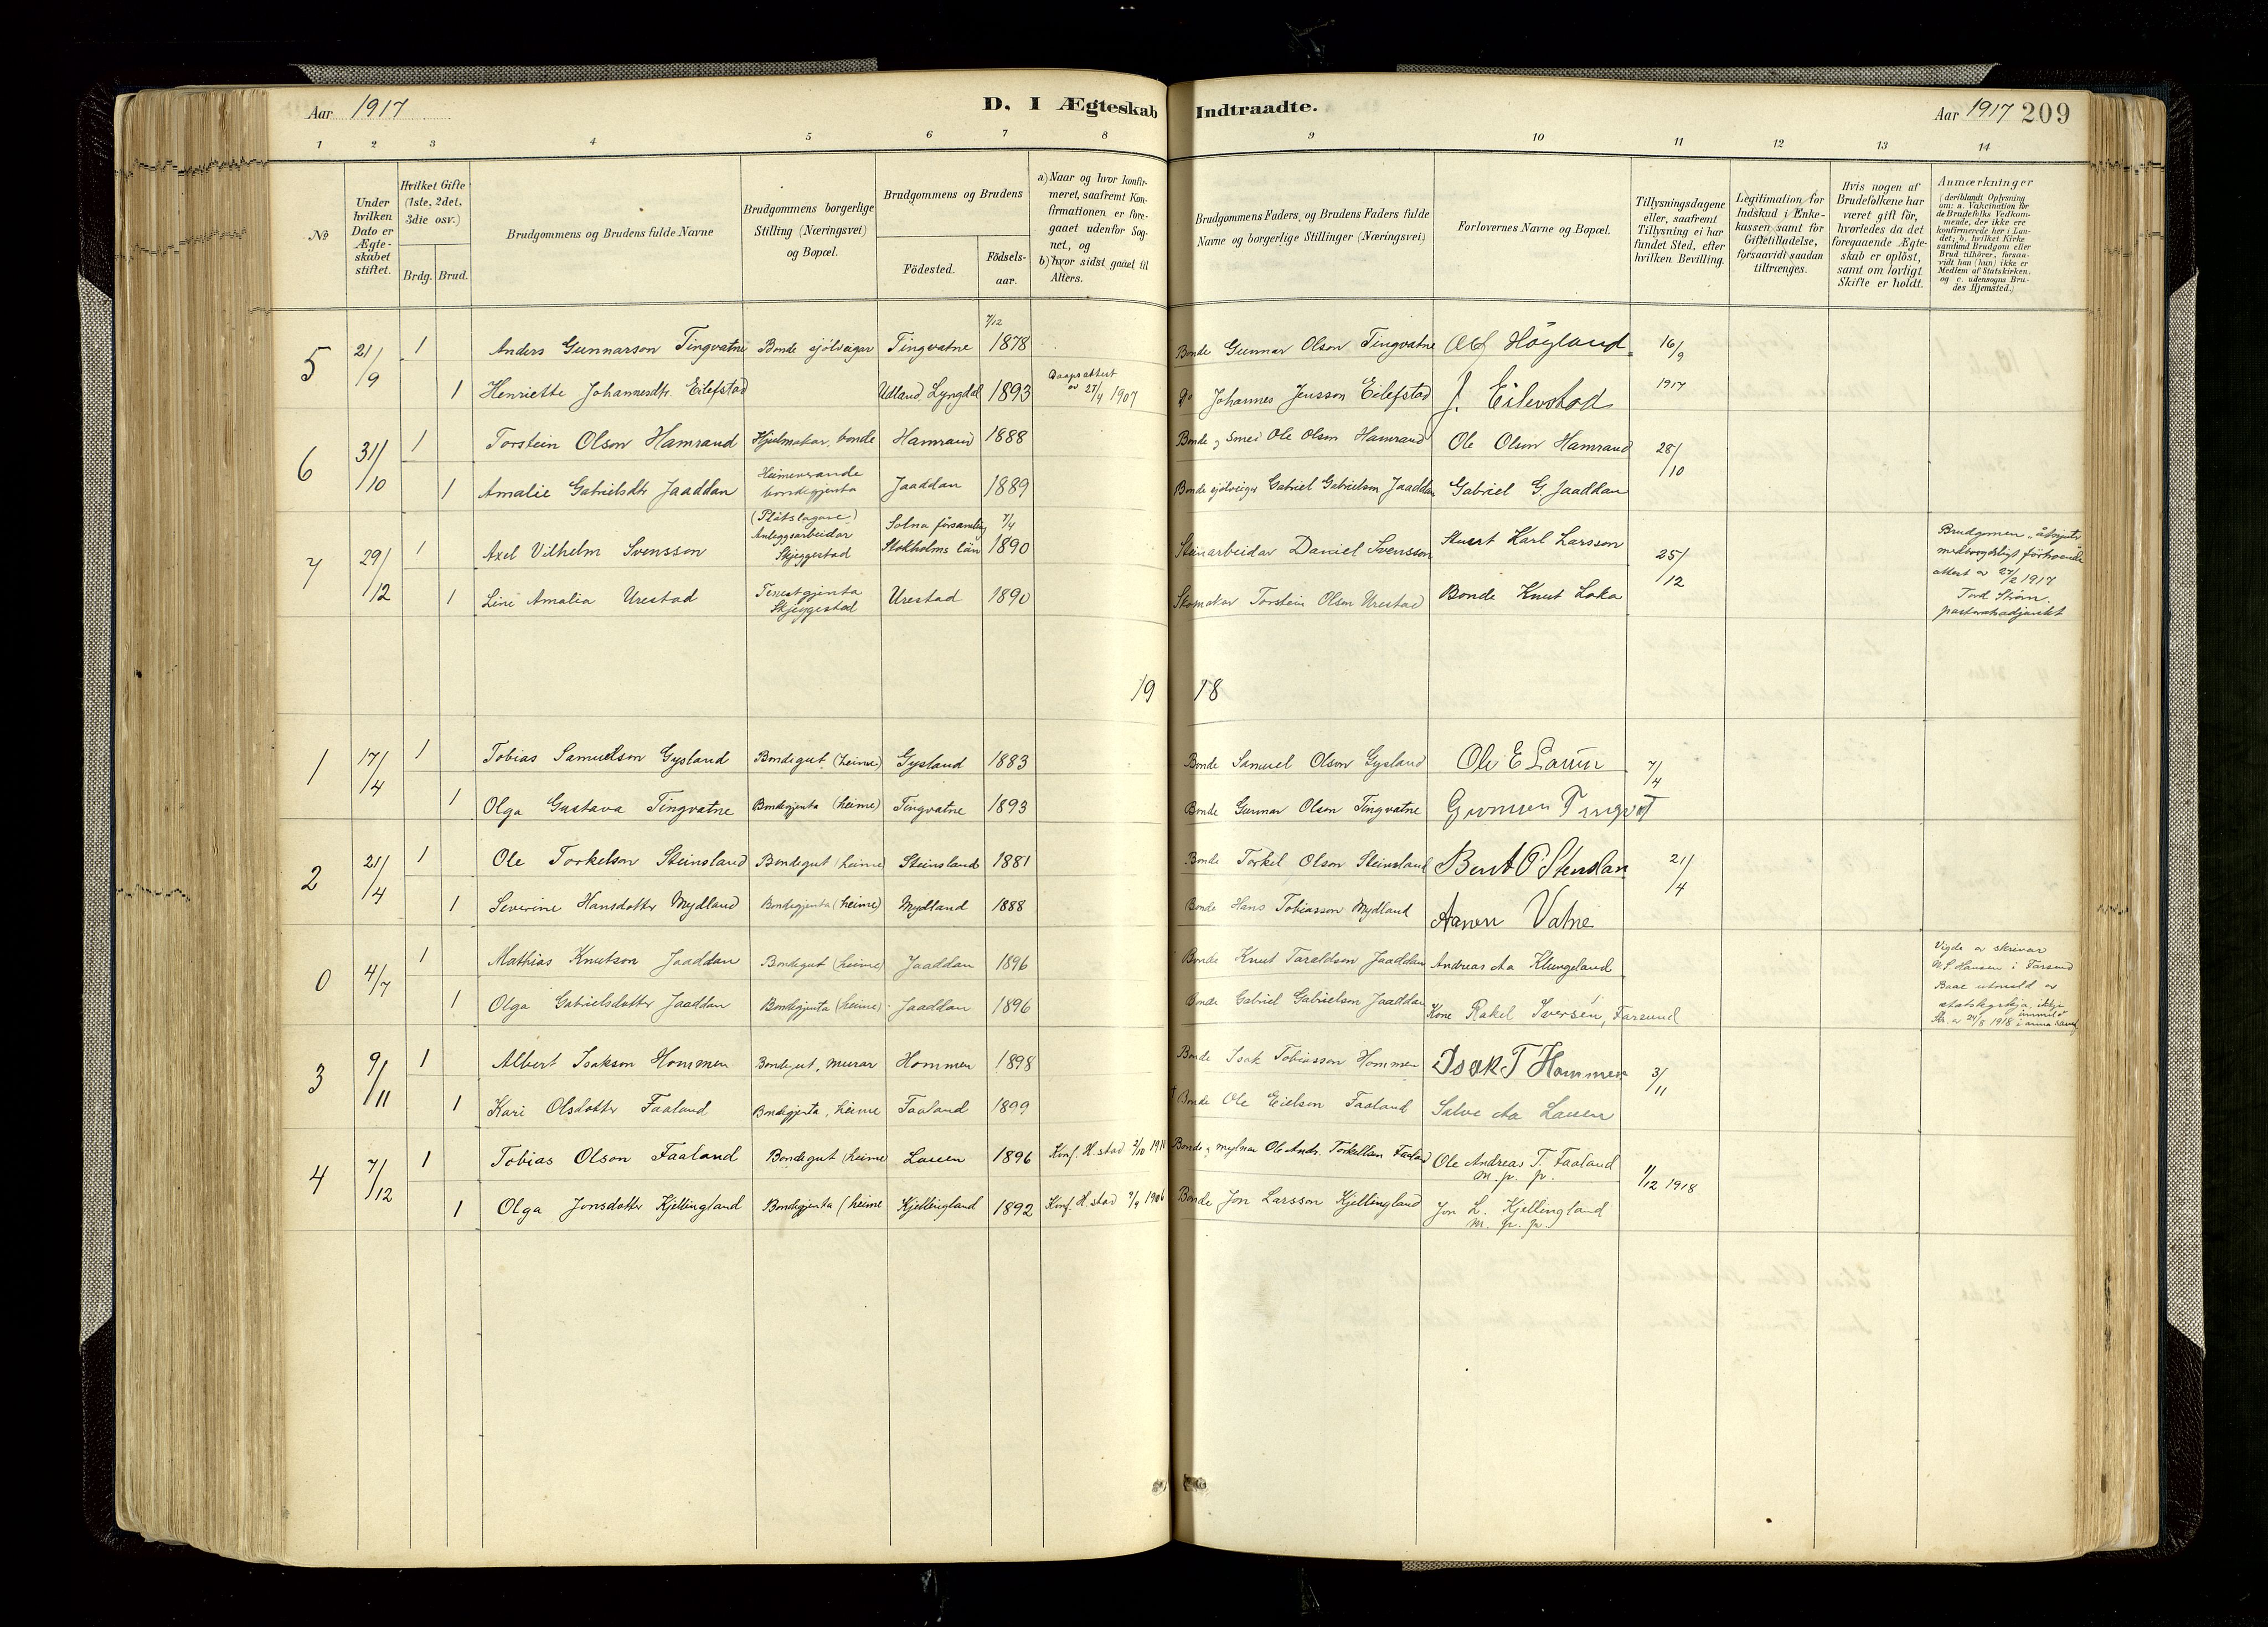 Aar 1917
D. I Ægteskab Indtraadte.
Aar 1917 209
1 2 3 4 5 6 7 8 9 10 11 12 13 14
No
Under hvilken Dato er Ægte-skabet stiftet.
Hvilket Gifte (1ste, 2det, 3die osv.)
Brdg. Brud.
Brudgommens og Brudens fulde Navne
Brudgommens borgerlige Stilling (Næringsvei) og Bopæl.
Brudgommens og Brudens
Födested.
Födsels-aar.
a) Naar og hvor konfir-meret, saafremt Kon-firmationen er fore-gaaet udenfor Sog-net, og
b) hvor sidst gaaet til Alters.
Brudgommens Faders og Brudens Faders fulde Navne og borgerlige Stillinger (Næringsvei)
Forlovernes Navne og Bopæl.
Tillysningsdagene eller, saafremt Tillysning ei har fundet Sted, efter hvilken Bevilling.
Legitimation for Indskud i Enke-kassen samt for Giftetilladelse, forsaavidt saadan tiltrænges.
Hvis nogen af Brudefolkene har været gift för, hvorledes da det foregaaende Ægte-skab er oplöst, samt om lovligt Skifte er holdt.
Anmærkninger (deriblandt Oplysning om: a. Vakcination for de Brudefolks Vedkom-mende, der ikke ere konfirmerede her i Lan-det; b. hvilket Kirke-samfund Brudgom eller Brud tilhörer, forsaa-vidt han (hun) ikke er Medlem af Statskirken, og c. udensogns Bru-des Hjemsted.)
5 21/9 1 Anders Gunnarson Tingvatne Bonde sjölveigar Tingvatne 7/12 1878 Bonde Gunnar Olson Tingvatne Olaf Höyland 16/9
1 Henriette Johannesdtr. Eilefstad Udland, Lyngdal 1893 Daapsattest av 27/4 1907 Do Johannes Jensson Eilefstad J. Eilevstad 1917
6 31/10 1 Torstein Olson Hamrand Hjulmakar, bonde Hamrand 1888 Bonde og Smed Ole Olson Hamrand Ole Olson Hamrand 28/10
1 Amalie Gabrielsdtr Jaaddan Heimeverande bondegjenta Jaaddan 1889 Bonde sjölveigar Gabriel Gabrielson Jaaddan Gabriel G. Jaaddan
7 29/12 1 Axel Vilhelm Svensson (Plåtslagare) Anleggsarbeidar Skjeggestad Solna församling Stokholms län 7/4 1890 Steinarbeidar Daniel Svensson Karl Larsson 25/12
Brudgomen
attest av 27/2 1917
Tord Ström.
pastoratsadjunkt
1 Line Amalia Urestad Tenestgjenta Skjeggestad Urestad 1890 Skomakar Torstein Olsen Urestad Bonde Knut Loka
19 18
1 17/4 1 Tobias Samuelson Gysland Bondegut (heime) Gysland 1883 Bonde Samuel Olson Gysland Ole E Lauen 7/4
1 Olga Gustava Tingvatne Bondegjenta (heime) Tingvatne 1893 Bonde Gunnar Olson Tingvatne Gunnar Tingvat
2 21/4 1 Ole Torkelson Steinsland Bondegut (heime) Steinsland 1881 Bonde Torkel Olson Steinsland Bent O Stenslan 21/4
1 Severine Hansdotter Mydland Bondegjenta (heime) Mydland 1888 Bonde Hans Tobiasson Mydland Aanen Vatne
0 4/7 1 Mathias Knutson Jaaddan Bondegut (heime) Jaaddan 1896 Bonde Knut Taraldson Jaaddan Andreas Aa Klungeland
Vigde av skrivar
Hansen i Farsund
Baae utmeld av
statskyrkja,
1 Olga Gabrielsdotter Jaaddan Bondegjenta (heime) Jaaddan 1896 Bonde Gabriel Gabrielson Jaaddan Kone Rakel Iversen, Farsund
3 9/11 1 Albert Isakson Hommen Bondegut, murar Hommen 1898 Bonde Isak Tobiasson Hommen Isak T Hommen 3/11
1 Kari Olsdotter Faaland Bondegjenta, heime Faaland 1899 † Bonde Ole Eielson Faaland Salve Aa Lauen
4 7/12 1 Tobias Olson Faaland Bondegut (heime Lauen 1896 Konf. H.stad 2/10 1911 Bonde og mylnar Ole Andr. Torkellsen Faaland Ole Andreas T. Faaland m. p. p. 1/12 1918
1 Olga Jonsdotter Kjellingland Bondegjenta (heime Kjellingland 1892 Konf. H.stad 1906 Bonde Jon Larsson Kjellingland Jon L. Kjellingland m. p. p.